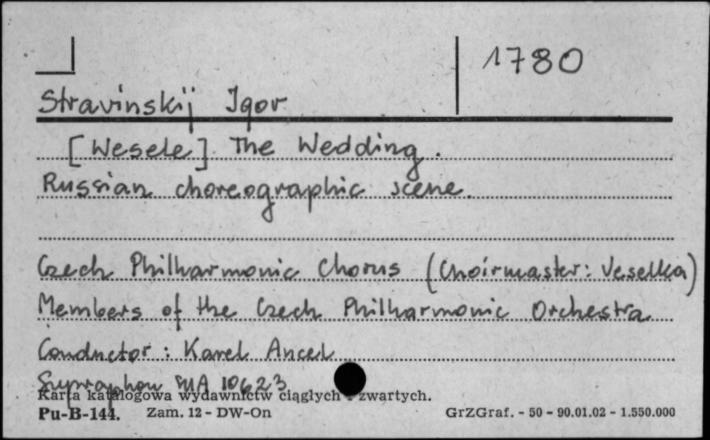 1780
Stravinskij Igor
[Wesele] The Wedding.
Russian choreographic scene.
Czech Philharmonic Chorus (Choirmaster: Veselka)
Members of the Czech Philharmonic Orchestra
Conductor: Karel Ancel
Supraphon SUA 10623
Karta katalogowa wydawnictw ciągłych i zwartych.
Pu-B-144. Zam. 12 - DW-On GrZGraf. - 50 - 90.01.02 - 1.550.000